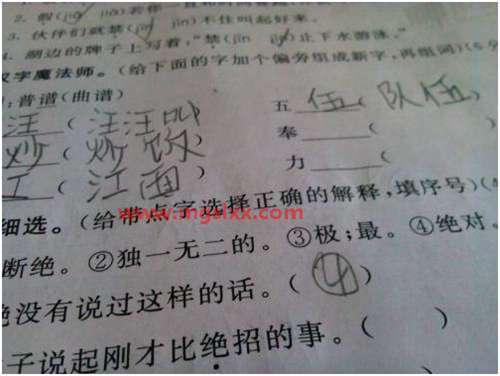 2. 假(jiǎ jià)若你一直
3. 伙伴们就禁(jīn jìn)不住叫起好来。
4. 湖边的牌子上写着，“禁(jīn jìn)止下水游泳。”
汉字魔法师。(给下面的字加个偏旁组成新字，再组词)(6分
:普谱(曲谱) 五 伍( 队伍)
汪(汪汪叫 奉 (
炒(炒饭 力 (
江(江面)
细选。(给带点字选择正确的解释，填序号)(4
断绝。②独一无二的。③极；最。④绝对。
绝没有说过这样的话。(④)
子说起刚才比绝招的事。( )
www.mgslxx.com